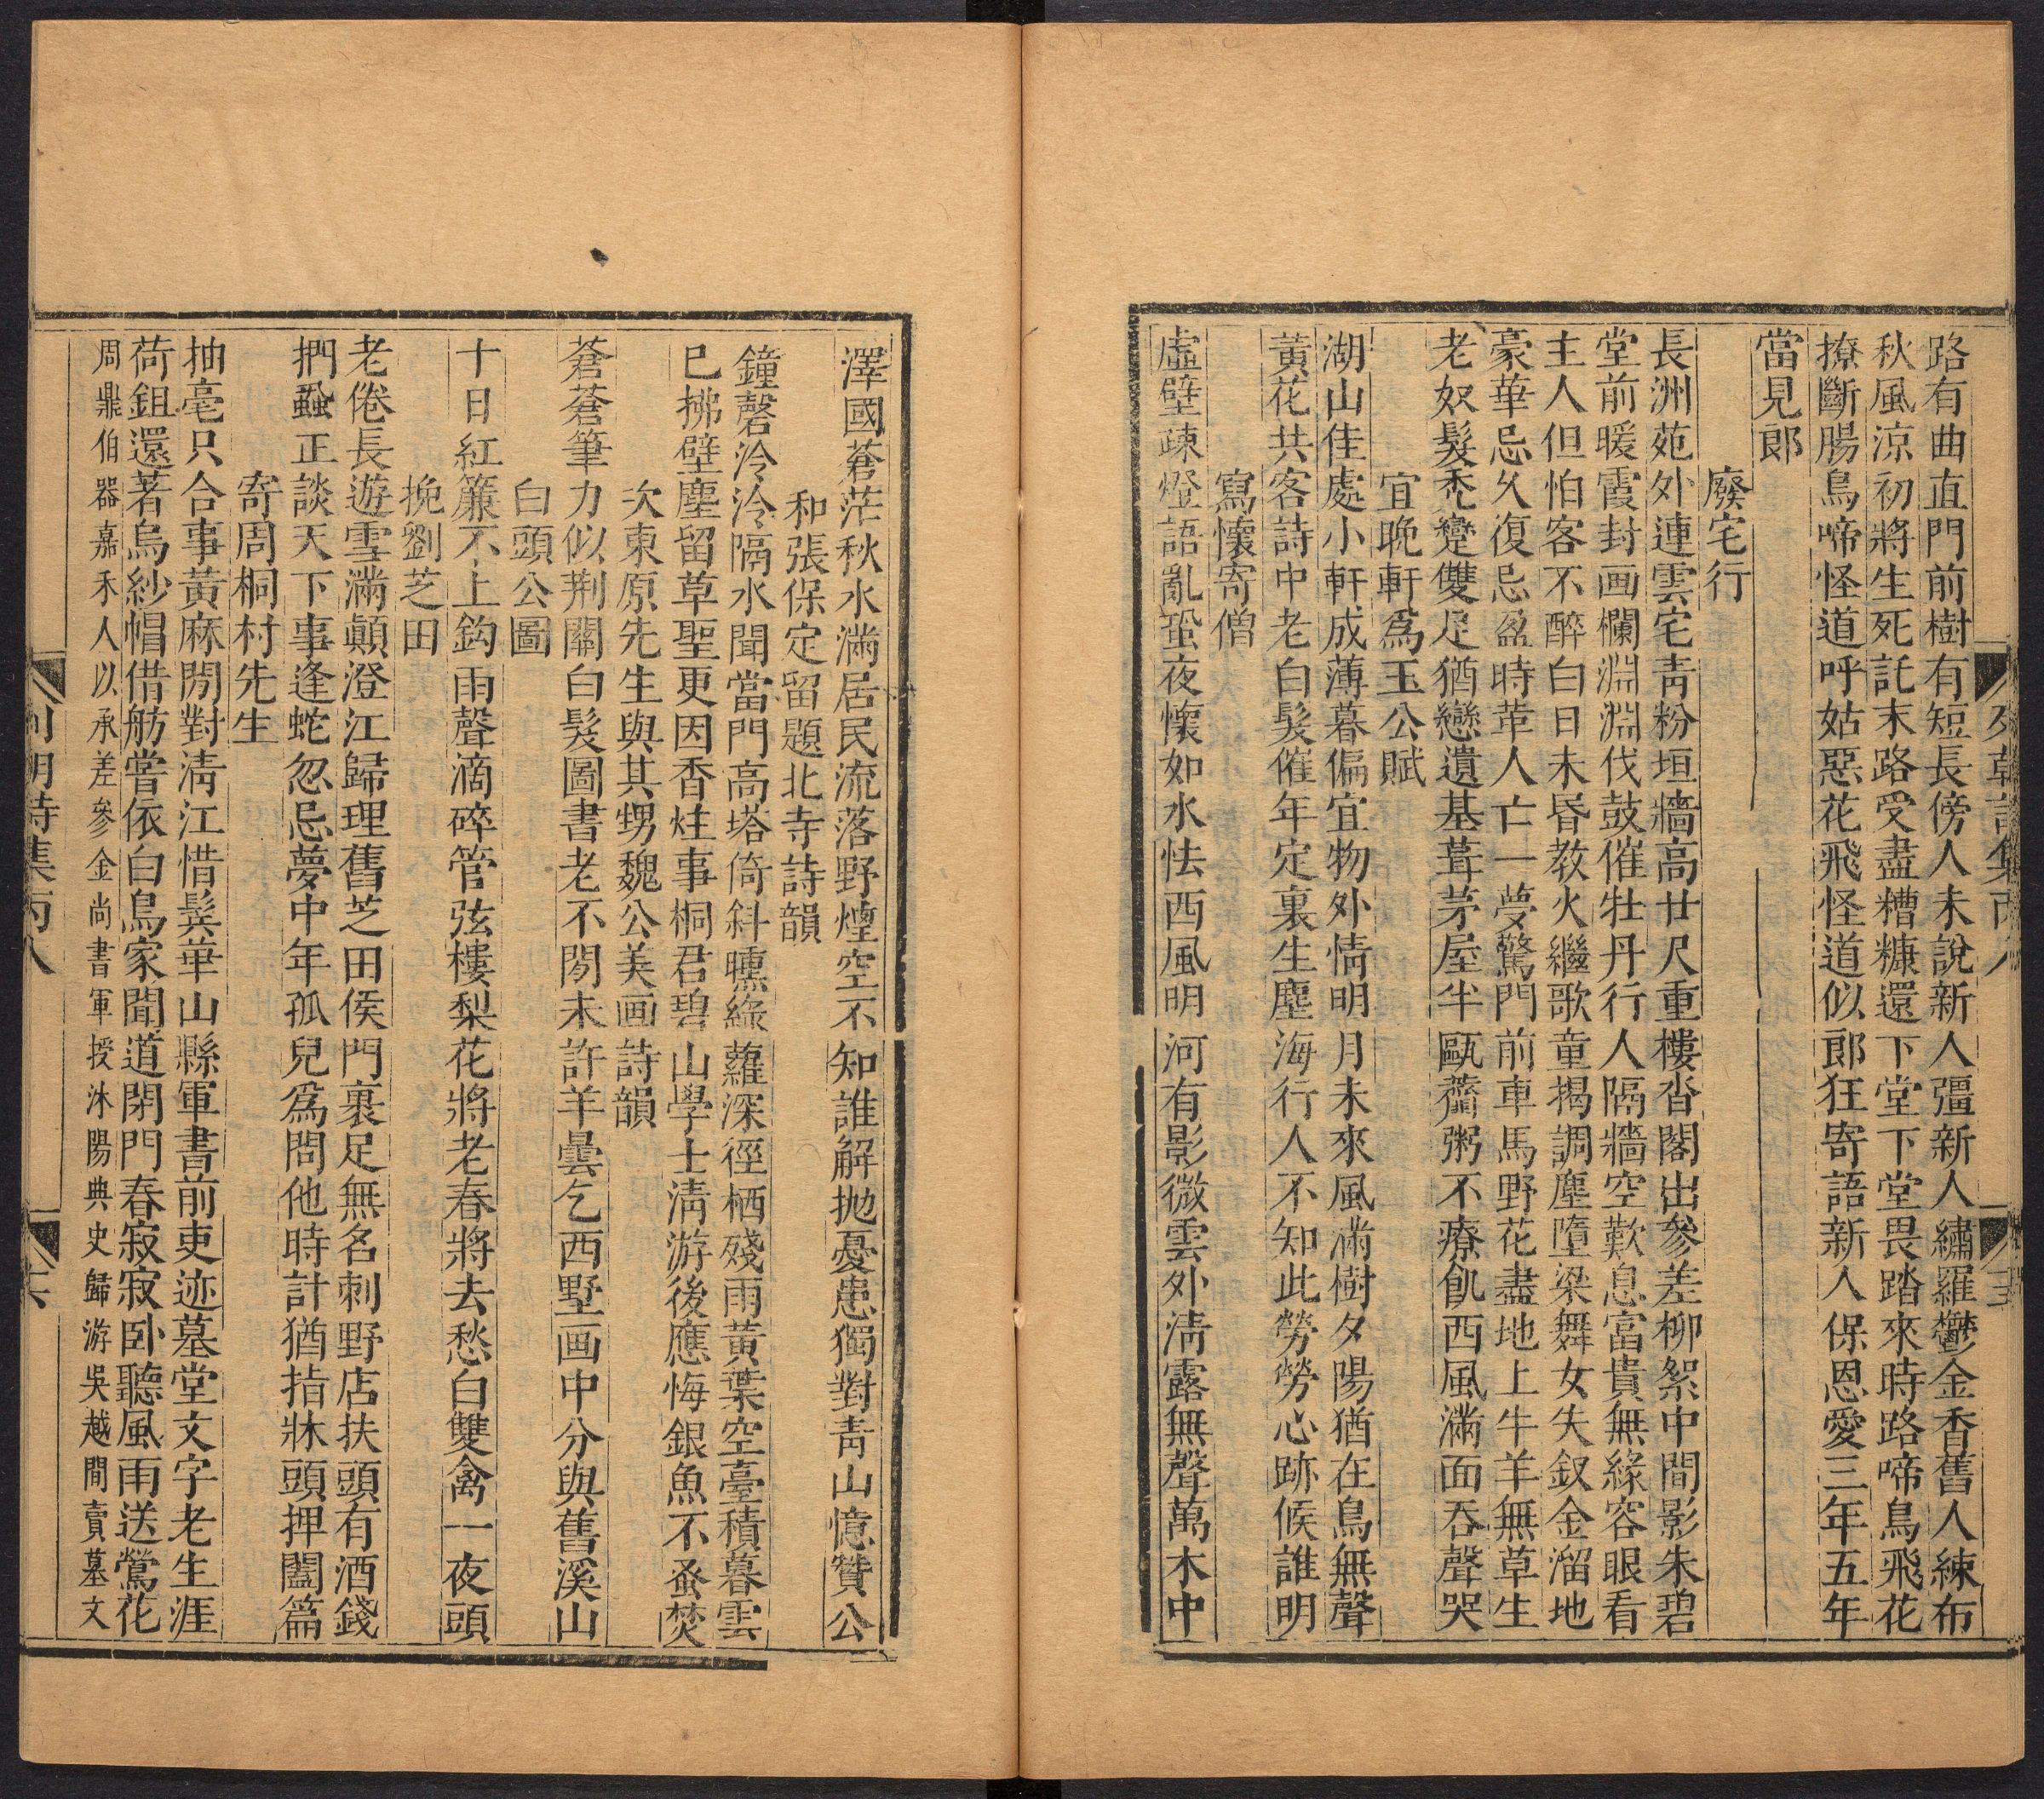 路有曲直門前樹有短長傍人未說新人彊新人繡羅鬱金香舊人練布
秋風涼初將生死託末路受盡糟糠還下堂下堂畏踏來時路啼鳥飛花
撩斷腸鳥啼怪道呼姑惡花飛怪道似郎狂寄語新人保恩愛三年五年
當見郎
廢宅行
長洲苑外連雲宅靑粉垣牆高廿尺重樓沓閣出參差柳絮中間影朱碧
堂前暖霞封画欄淵淵伐鼓催牡丹行人隔牆空歎息富貴無緣容眼看
主人但怕客不醉白日未昏教火繼歌童揭調塵墮梁舞女失釵金溜地
豪華忌久復忌盈時革人亡一夢驚門前車馬野花盡地上牛羊無草生
老奴髮禿躄雙足猶戀遺基葺茅屋半甌虀粥不療飢西風滿面吞聲哭
宜晚軒爲玉公賦
湖山佳處小軒成薄暮偏宜物外情明月未來風滿樹夕陽猶在鳥無聲
黃花共客詩中老白髮催年定裏生塵海行人不知此勞勞心跡候誰明
寫懷寄僧
虛壁疎燈語亂蛩夜懷如水怯西風明河有影微雲外淸露無聲萬木中
澤國蒼茫秋水滿居民流落野煙空不知誰解抛憂患獨對靑山憶贊公
和張保定留題北寺詩韻
鐘磬泠泠隔水聞當門高塔倚斜曛綠蘿深徑栖殘雨黃葉空臺積暮雲
已拂壁塵留草聖更因香炷事桐君碧山學士淸游後應悔銀魚不蚤焚
次東原先生與其甥魏公美画詩韻
蒼蒼筆力似荆關白髮圖書老不閒未許羊曇乞西墅画中分與舊溪山
白頭公圖
十日紅簾不上鈎雨聲滴碎管弦樓梨花將老春將去愁白雙禽一夜頭
挽劉芝田
老倦長遊雪滿顛澄江歸理舊芝田侯門裏足無名刺野店扶頭有酒錢
捫蝨正談天下事逢蛇忽忌夢中年孤兒爲問他時計猶指牀頭押闔篇
寄周桐村先生
抽毫只合事黃麻閒對淸江惜鬂華山縣軍書前吏迹墓堂文字老生涯
荷鉏還著烏紗帽借舫嘗依白鳥家聞道閉門春寂寂卧聽風雨送鶯花
周鼎伯器嘉禾人以承差參金尚書軍授沐陽典史歸游吳越間賣墓文